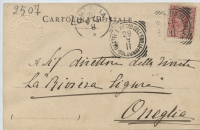 2507
CARTOLINA POSTALE
A S. direttore della rivista
La "Riviera Ligure"
Oneglia